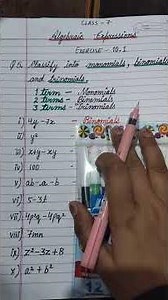 CLASS - 7
Algebraic Expressions
EXERCISE - 10.1
Q.5. Classify into monomials, binomials
and trinomials.
1 term - Monomials
2 terms - Binomials
3 terms - Trinomials
i) 4y - 7z - Binomials
ii) y²
iii) x+y-xy
iv) 100
v) ab-a-b
vi) 5-3t
vii) 4p²q-4pq²
viii) 7mn
ix) z²-3z+8
x) a²+b²
12